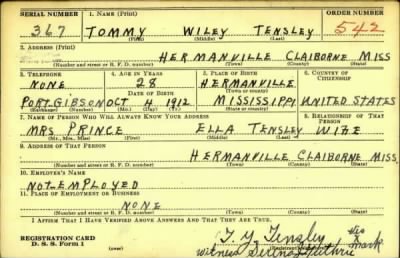 SERIAL NUMBER 1. NAME (Print) ORDER NUMBER
367 TOMMY WILEY TENSLEY 542
(First) (Middle) (Last)
2. ADDRESS (Print)
HERMANVILLE CLAIBORNE MISS
(Number and street or R. F. D. number) (Town or county) (State)
3. TELEPHONE 4. AGE IN YEARS 5. PLACE OF BIRTH 6. COUNTRY OF CITIZENSHIP
NONE 28 HERMANVILLE
DATE OF BIRTH (Town or county)
PORT GIBSON OCT 4 1912 MISSISSIPPI UNITED STATES
(Exchange) (Number) (Mo.) (Day) (Yr.) (State or country)
7. NAME OF PERSON WHO WILL ALWAYS KNOW YOUR ADDRESS 8. RELATIONSHIP OF THAT PERSON
MRS PRINCE ELLA TENSLEY WIFE
(Mr., Mrs., Miss) (First) (Middle) (Last)
9. ADDRESS OF THAT PERSON
HERMANVILLE CLAIBORNE MISS.
(Number and street or R. F. D. number) (Town or county) (State)
10. EMPLOYER'S NAME
NOT EMPLOYED
11. PLACE OF EMPLOYMENT OR BUSINESS
NONE
(Number and street or R. F. D. number) (Town) (County) (State)
I AFFIRM THAT I HAVE VERIFIED ABOVE ANSWERS AND THAT THEY ARE TRUE.
REGISTRATION CARD T. Y. Tensley his mark
D. S. S. Form 1 (over) witness Guthrie